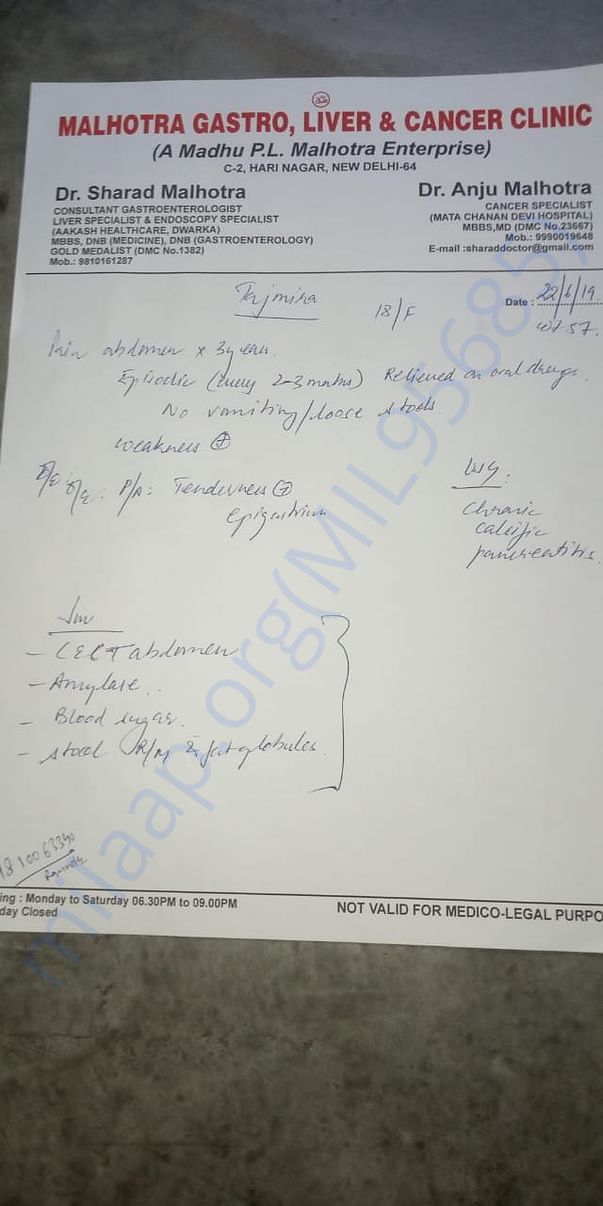 MALHOTRA GASTRO, LIVER & CANCER CLINIC
(A Madhu P.L. Malhotra Enterprise)
C-2, HARI NAGAR, NEW DELHI-64
Dr. Sharad Malhotra
CONSULTANT GASTROENTEROLOGIST
LIVER SPECIALIST & ENDOSCOPY SPECIALIST
(AAKASH HEALTHCARE, DWARKA)
MBBS, DNB (MEDICINE), DNB (GASTROENTEROLOGY)
GOLD MEDALIST (DMC No.1382)
Mob.: 9810161287
Dr. Anju Malhotra
CANCER SPECIALIST
(MATA CHANAN DEVI HOSPITAL)
MBBS,MD (DMC No.23667)
Mob.: 9990019648
E-mail :sharaddoctor@gmail.com
Tajmira
18/F
Date : 22/6/19
57
Pain abdomen x 3 years.
Episodic (every 2-3 months) Relieved on oral drugs.
No vomiting/loose stools
weakness +
P/A: Tenderness +
epigastrium
USG:
Chronic
calcific
pancreatitis.
Inv
- CECT abdomen
- Amylase.
- Blood sugar.
- stool R/M fat globules.
ing : Monday to Saturday 06.30PM to 09.00PM
day Closed
NOT VALID FOR MEDICO-LEGAL PURPO
milaap.org(MIL95685)